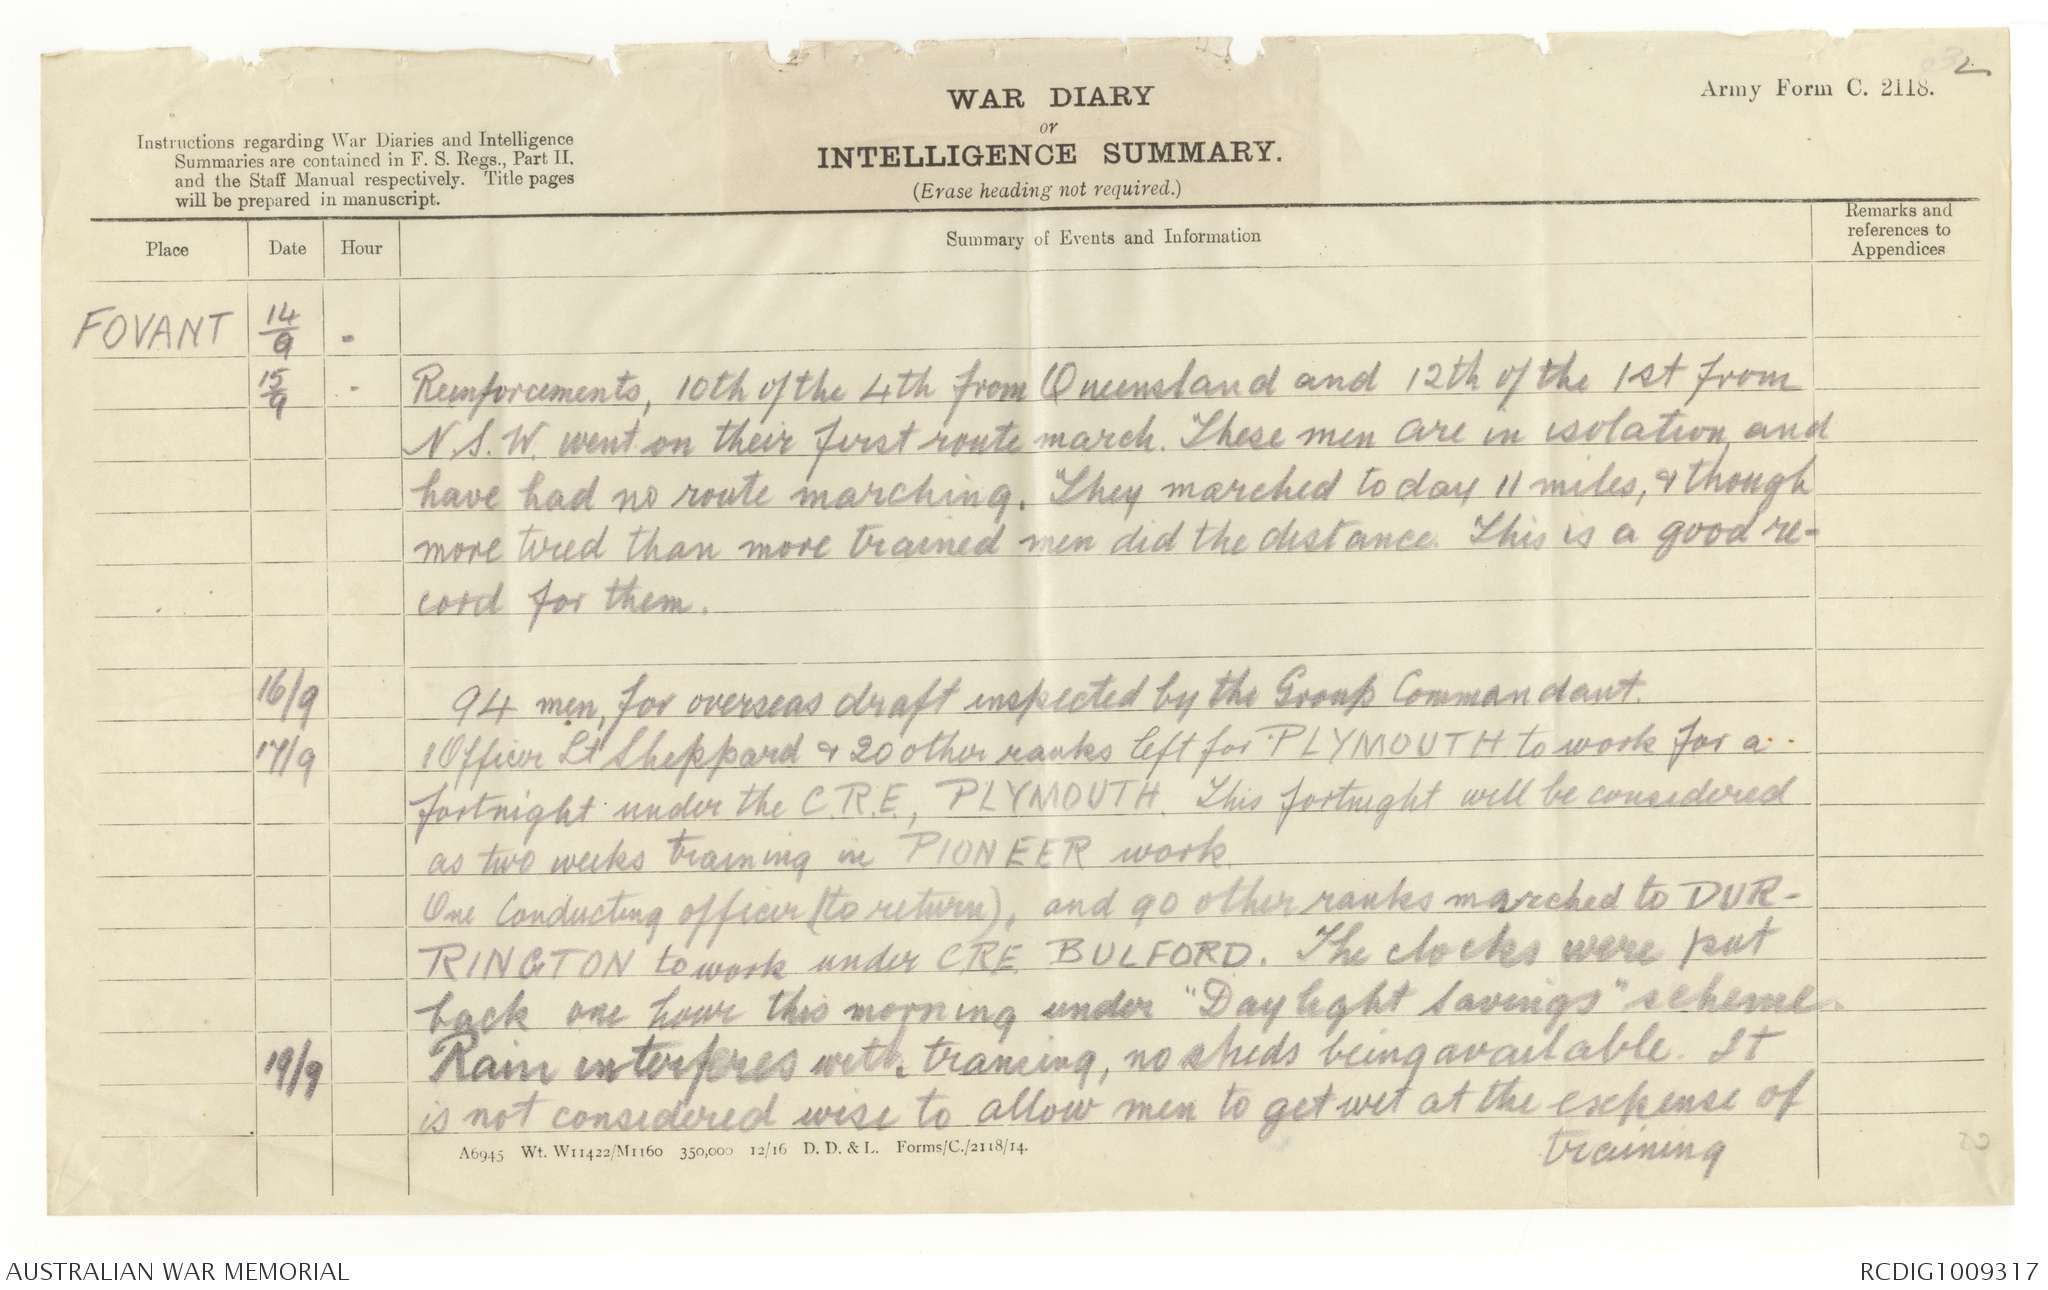 2
Army Form C. 2118.
WAR DIARY
or
INTELLIGENCE SUMMARY.
(Erase heading not required.)
Instructions regarding War Diaries and Intelligence
Summaries are contained in F. S. Regs., Part II.
and the Staff Manual respectively. Title pages
will be prepared in manuscript.
Place Date Hour Summary of Events and Information Remarks and references to Appendices
FOVANT 14/9 -
15/9 - Reinforcements, 10th of the 4th from Queensland and 12th of the 1st from
N.S.W. went on their first route march. These men are in isolation and
have had no route marching. They marched today 11 miles, & though
more tired than more trained men did the distance. This is a good re-
cord for them.
16/9 94 men, for overseas draft inspected by the Group Commandant.
17/9 1 Officer Lt Sheppard & 20 other ranks left for PLYMOUTH to work for a
fortnight under the C.R.E., PLYMOUTH. This fortnight will be considered
as two weeks training in PIONEER work.
One Conducting officer (to return), and 90 other ranks marched to DUR-
RINGTON to work under CRE BULFORD. The clocks were put
back one hour this morning under "Daylight Savings" scheme.
19/9 Rain interferes with traning, no sheds being available. It
is not considered wise to allow men to get wet at the expense of
training
A6945 Wt. W11422/M1160 350,000 12/16 D. D. & L. Forms/C./2118/14.
AUSTRALIAN WAR MEMORIAL
RCDIG1009317